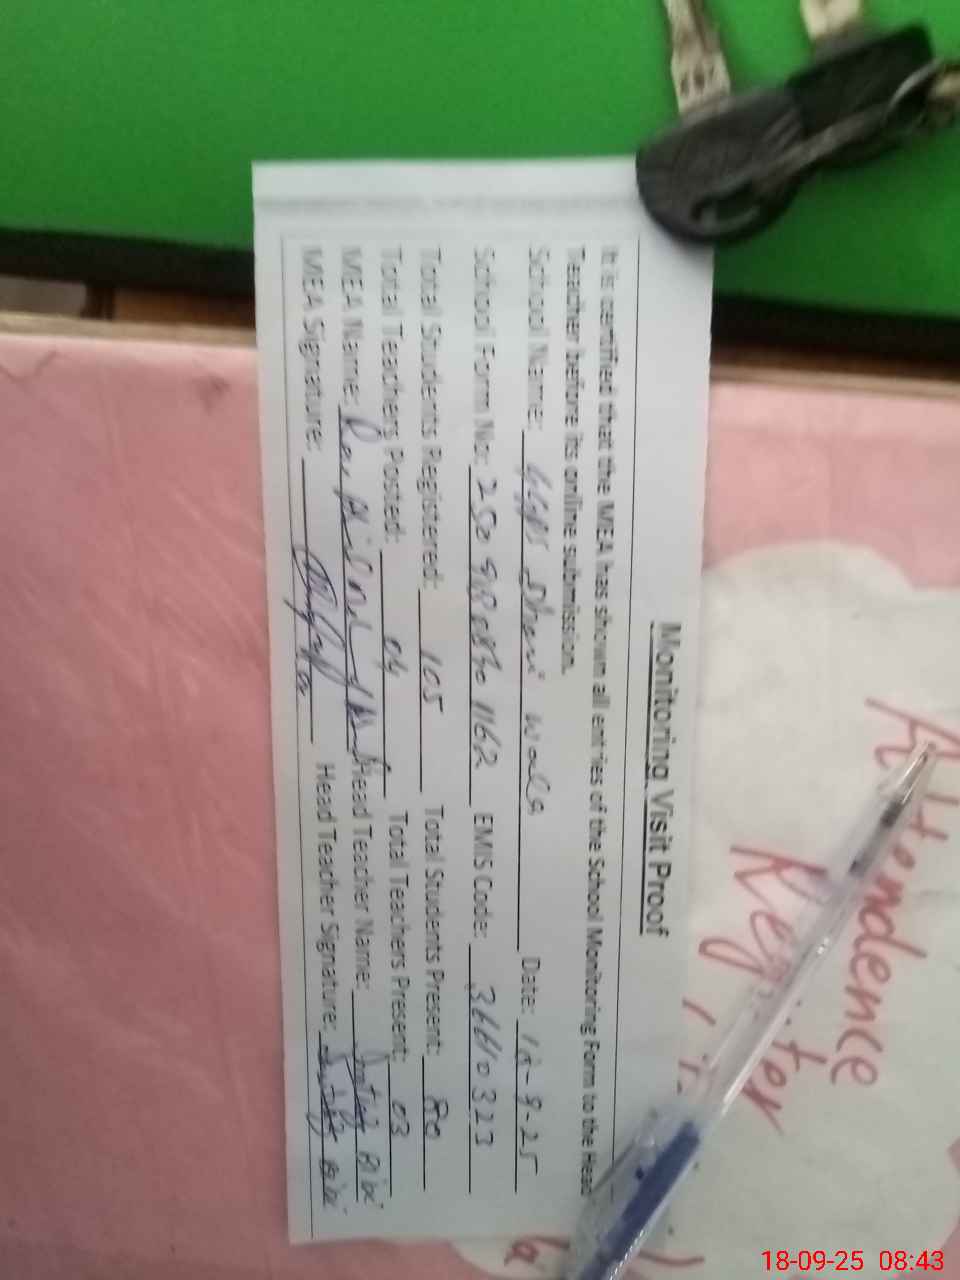 Monitoring Visit Proof
It is certified that the MEA has shown all entries of the School Monitoring Form to the Head
Teacher before its online submission.
School Name: GGPS wala Date: 18-9-25
School Form No: EMIS Code: 36610323
Total Students Registered: 105 Total Students Present: 80
Total Teachers Posted: 04 Total Teachers Present: 03
MEA Name: Head Teacher Name: Bibi
MEA Signature: Head Teacher Signature: Bibi
Attendence
Register
18-09-25 08:43